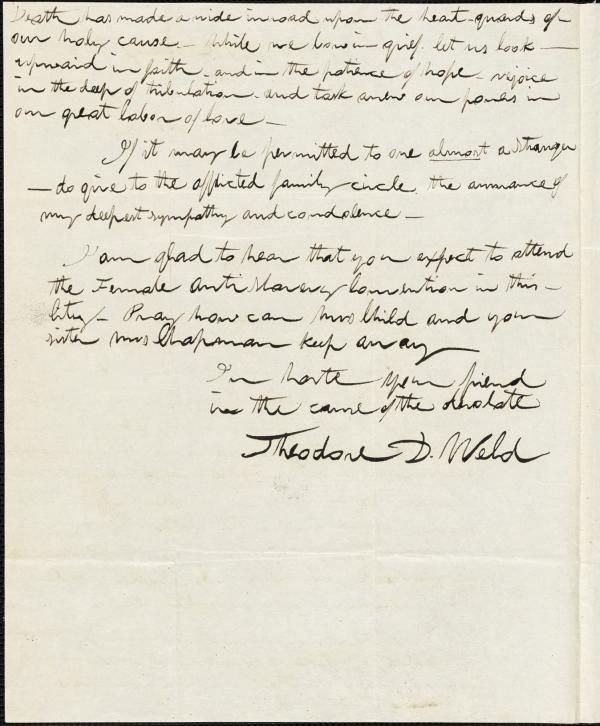 Death has made a wide inroad upon the heart-guards of
our holy cause. – While we bow in grief let us look —
upward in faith, and in the patience of hope – rejoice
in the deep of tribulation – and task anew our powers in
our great labor of love –
If it may be permitted to one almost a stranger
– do give to the afflicted family circle, the assurance of
my deepest sympathy and condolence –
I am glad to hear that you expect to attend
the Female Anti Slavery Convention in this –
City – Pray how can Mrs Child and your
sister Mrs Chapman keep away
In haste your friend
in the cause of the desolate
Theodore D. Weld